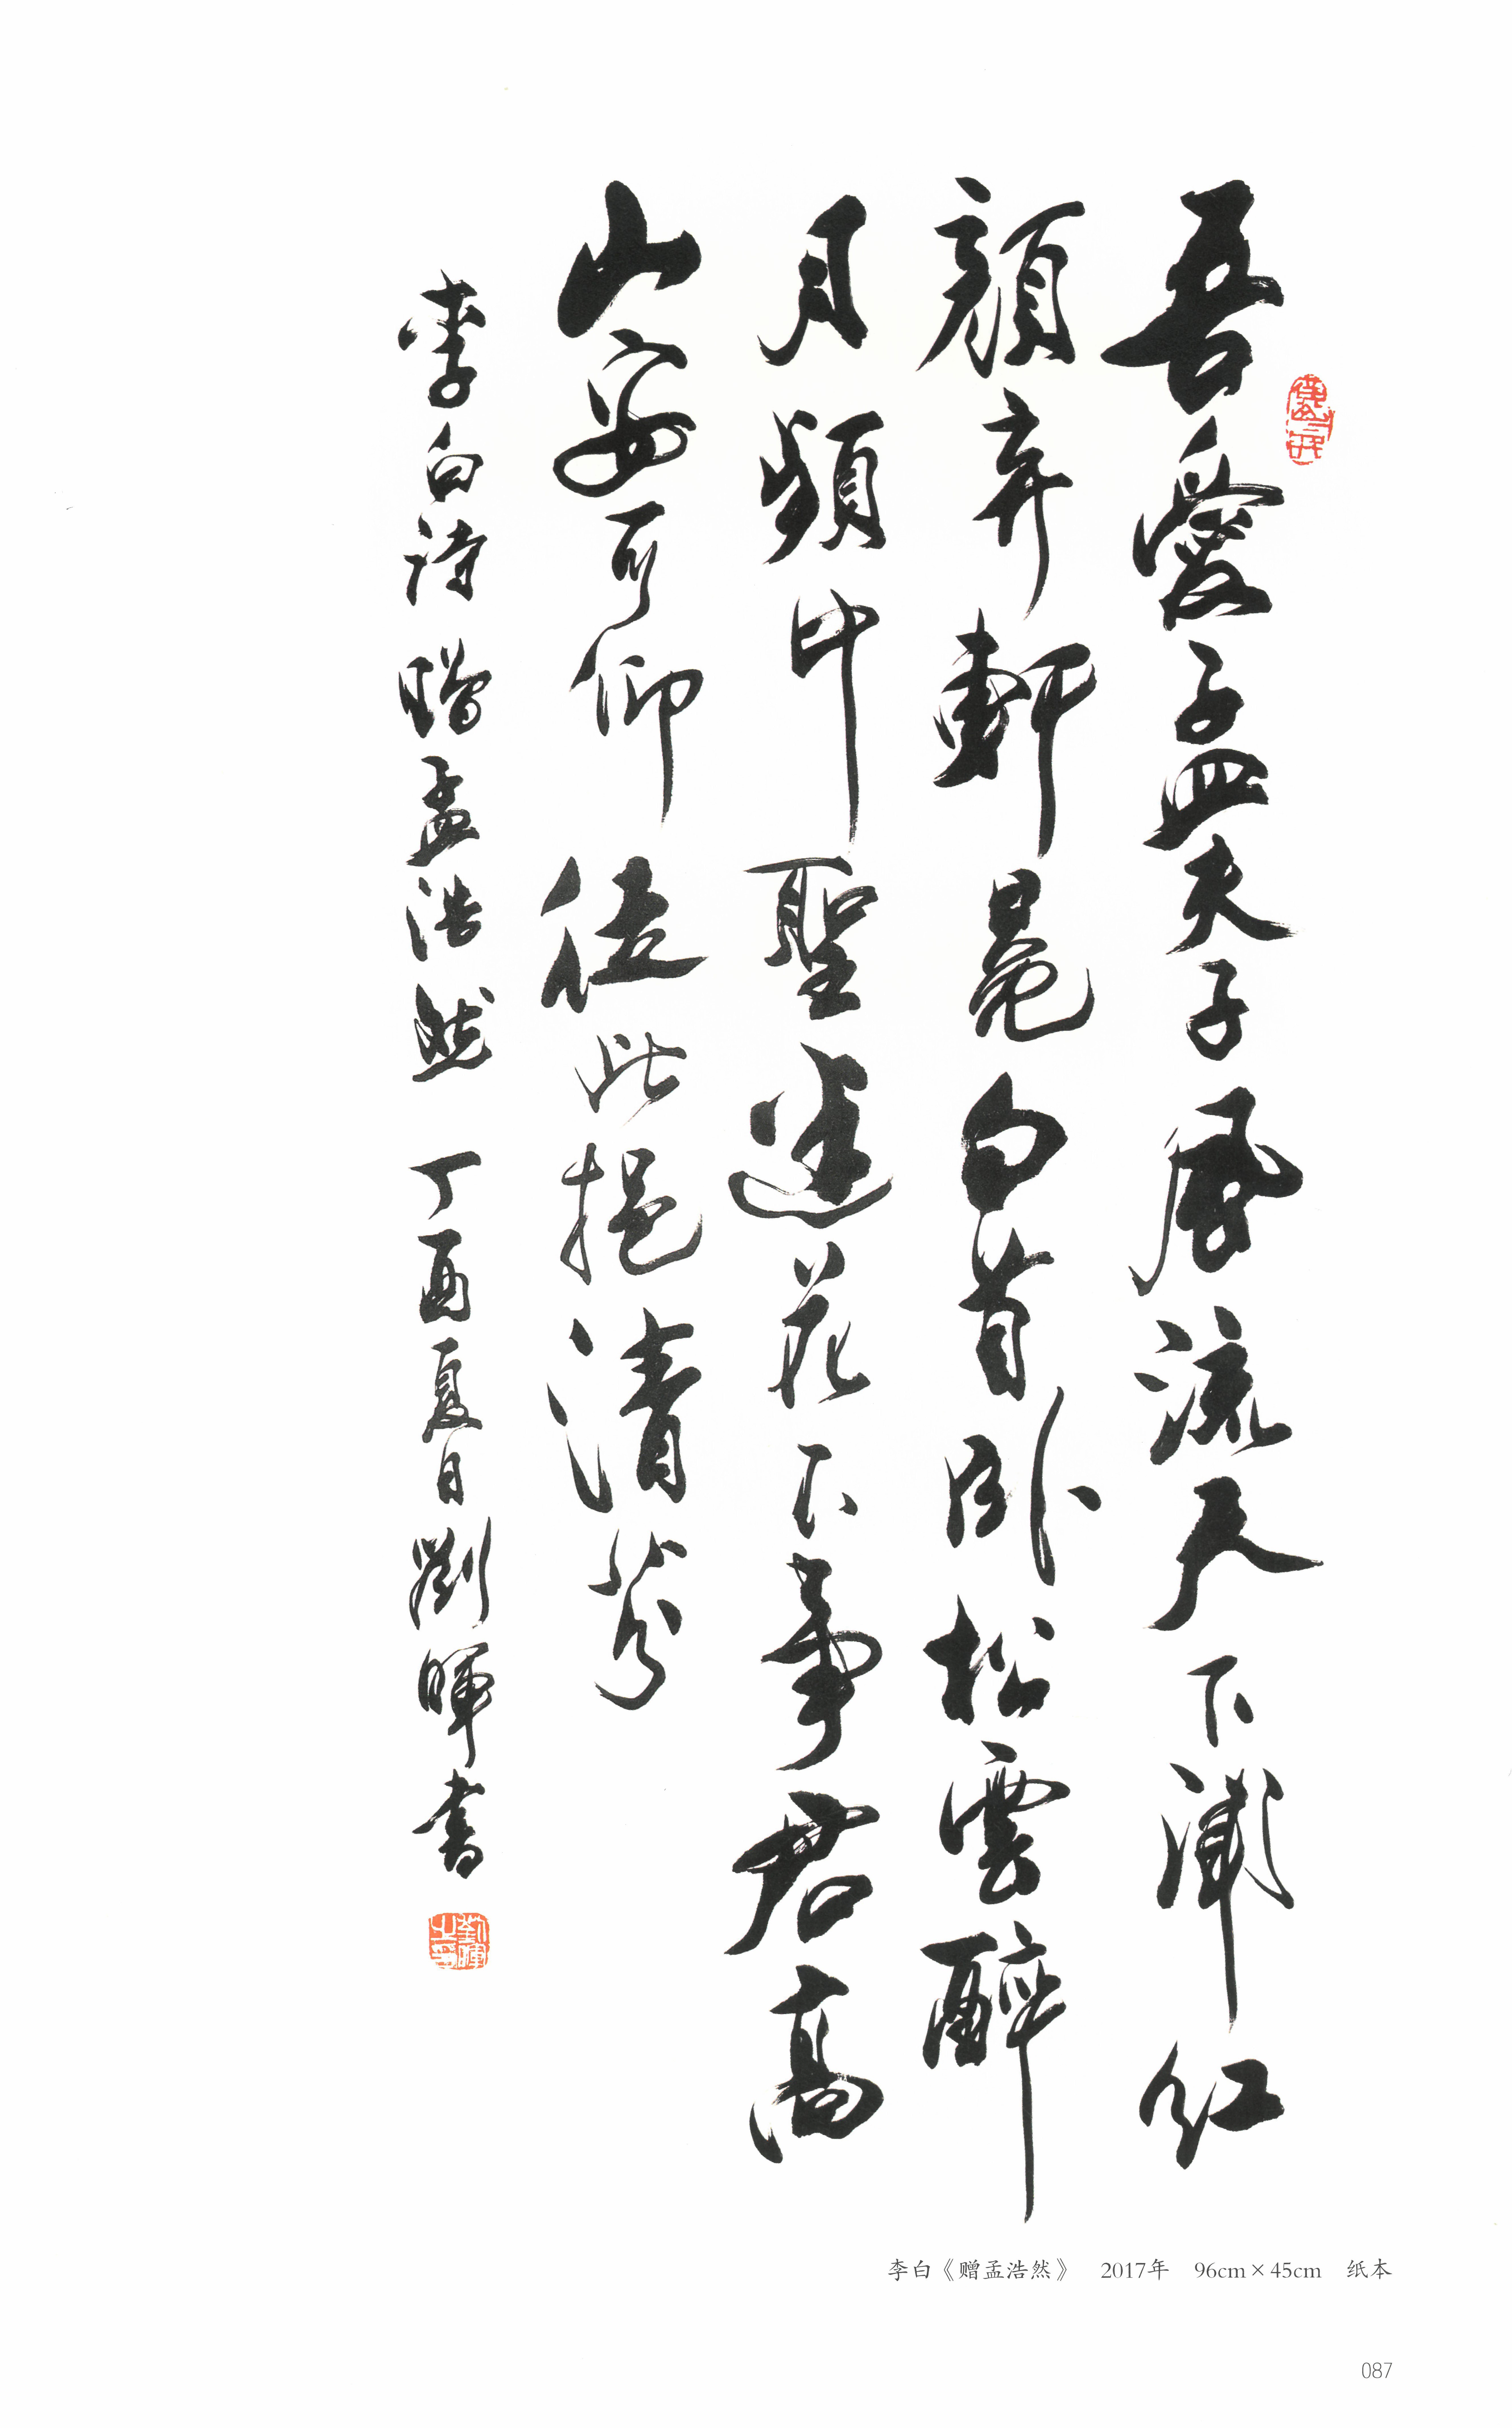 吾愛孟夫子風流天下聞紅
顏弃軒冕白首卧松雲醉
月頻中聖迷花不事君高
山安可仰徒此挹清芬
李白詩贈孟浩然 丁酉夏日劉暉書
劉暉之印
李白《赠孟浩然》 2017年 96cm×45cm 纸本
087